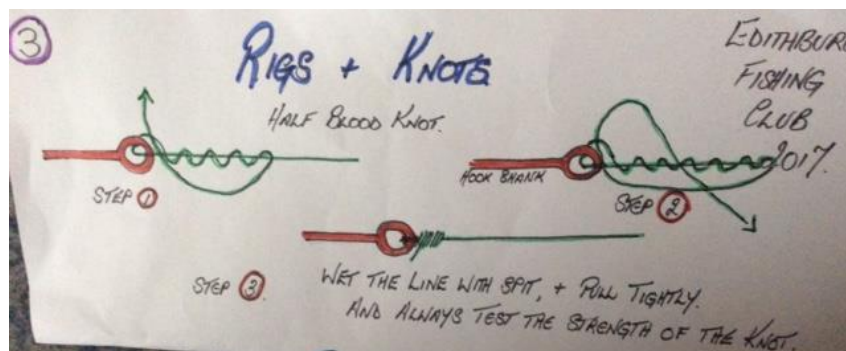 3
RIGS + KNOTS
EDITHBUR
FISHING
CLUB
2017.
HALF BLOOD KNOT.
STEP 1
HOOK SHANK
STEP 2
STEP 3.
WET THE LINE WITH SPIT, + PULL TIGHTLY.
AND ALWAYS TEST THE STRENGTH OF THE KNOT.